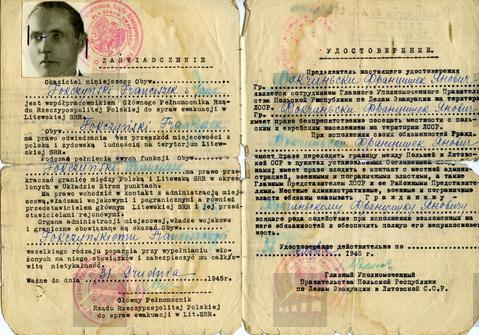 ZAŚWIADCZENIE
Okaziciel niniejszego Obyw.
Fokczyński Franciszek s. Jana
jest współpracownikiem Głównego Pełnomocnika Rzą-
du Rzeczypospolitej Polskiej do spraw ewakuacji w
Litewskiej SRR.
Obyw. Fokczyński
na prawo odwiedzać wszystkie miejscowości z
polską i żydowską ludnością na terytorjum Litew-
skiej SRR.
pełnienia swoich funkcji Obyw.
Fokczyński
na prawo prze-
kraczać granicę między Polską i Litewską SRR w okreś-
lonych w Układzie Stron punktach.
Na prawo wchodzić w kontakt z administracją miej-
scową, władzami wojskowymi i pogranicznymi a również
przedstawicielem głównym Litewskiej SRR i jej przed-
stawicielami rejonowymi.
Organa administracji miejscowej, władze wojskowe
i graniczne obowiązane są okazać Obyw.
Fokczyńskiemu
wszelkiego rodzaju pomocy przy wypełnianiu włożo-
nych na niego obowiązków i zabezpieczyć mu całko-
witą nietykalność.
Ważne do dnia 31 Grudnia 1945 r.
Główny Pełnomocnik
Rządu Rzeczypospolitej Polskiej
do spraw ewakuacji w Lit.SRR.
УДОСТОВЕРЕНИЕ.
Предъявитель настоящего удостоверения
Гр. Фокчиньски Францишек Янович
является сотрудником Главного Уполномоченного Правительства
Польской Республики по Делам Эвакуации в
ЛССР.
Гр. Фокчиньски Францишек Янович
имеет право
польским и еврейским населением на территории ЛССР.
При исполнении своих обязанностей Гражд.
Фокчиньски Францишек Янович
имеет право переходить границу между Польшей и Литов-
ской ССР в пунктах установленных Соглашением
имеет право входить в контакт с местной админи-
страцией, военными и пограничными властями, а также
Главным Представителем ЛССР и ее Районными Представите-
лями. Местные административные, военные и пограничные
власти обязаны оказывать Гражданину
Фокчиньскому Францишку Яновичу
всякого рода содействие при исполнении возложенных
на него обязанностей и обеспечить полную его неприкосновен-
ность.
Удостоверение действительно по
1945 г.
Главный Уполномоченный
Правительства Польской Республики
по Делам Эвакуации в Литовской С.С.Р.